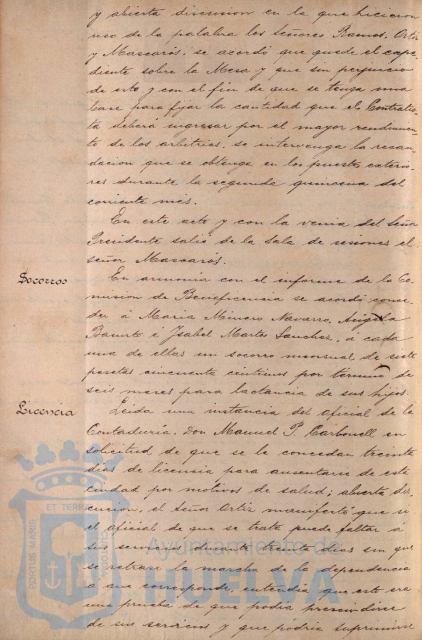 y abierta discusion en la que hicieron
uso de la palabra los Señores Ramos, Ortiz
y Mascarós, se acordó que quede el expe-
diente sobre la Mesa y que sin perjuicio
de esto y con el fin de que se tenga una
base para fijar la cantidad que el Contratis-
ta deberá ingresar por el mayor rendimien-
to de los arbitrios, se intervenga la recau-
dacion que se obtenga en los puestos exterio-
res durante la segunda quincena del
corriente mes.
En este acto y con la venia del Señor
Presidente salió de la Sala de sesiones el
señor Mascarós.
Socorros
En armonia con el informe de la Co-
mision de Beneficencia se acordó conce-
der á Maria Minero Navarro, Angela
é Isabel Martos Sanchez, á cada
una de ellas un socorro mensual de siete
pesetas cincuenta centimos por termino de
seis meses para lactancia de sus hijos.
Licencia
Leida una instancia del oficial de la
Contaduría, Don Manuel P. Carbonell, en
solicitud de que se le concedan treinta
dias de licencia para ausentarse de esta
ciudad por motivos de salud; abierta dis-
cusion, el Señor Ortiz manifestó que si
el oficial de que se trata puede faltar á
sus servicios durante treinta dias sin que
se retrase la marcha de la dependencia
a que corresponde, entendia que esto era
una prueba de que podia prescindirse
de sus servicios y que podria suprimirse
PORTUS MARIS
ET TERRAE
CUSTODIA
Ayuntamiento de
HUELVA